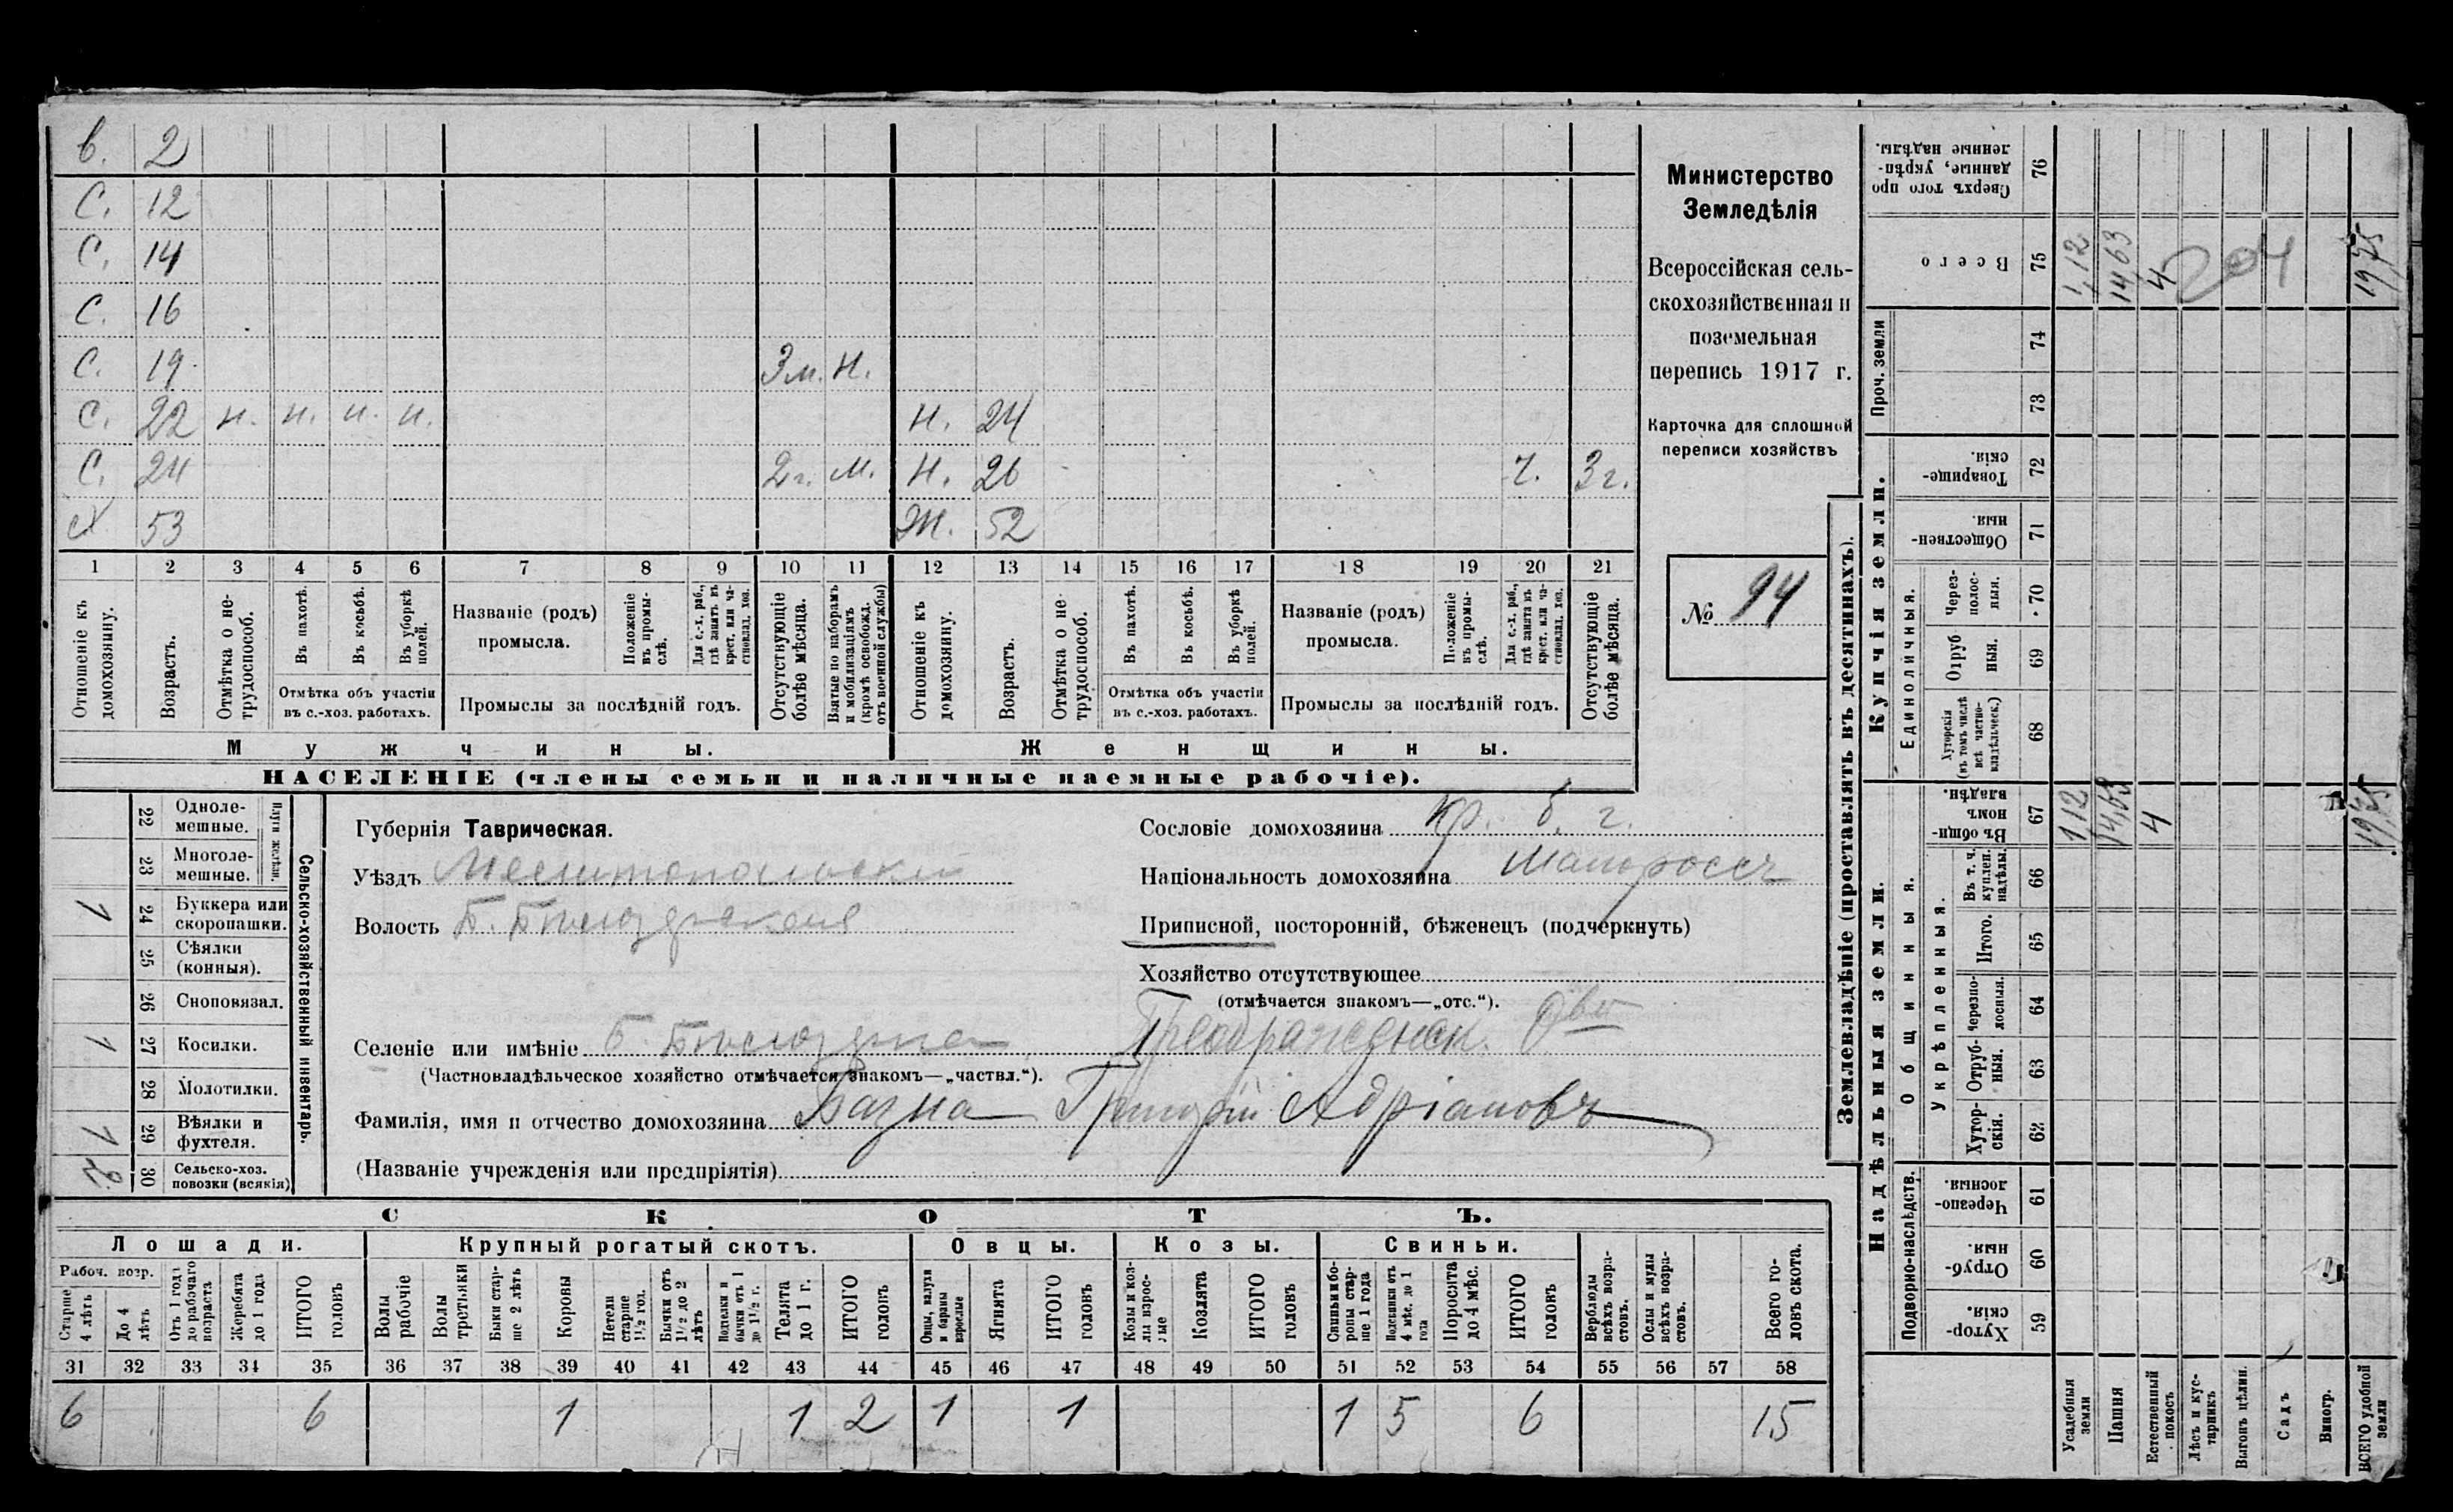 в. 2
С. 12
С. 14
С. 16
С. 19 3 м. н.
С. 22 н. н. н. н. Н. 24
С. 24 2 г. м. Н. 26 ч. 3 г.
Х 53 Ж. 52
1 2 3 4 5 6 7 8 9 10 11 12 13 14 15 16 17 18 19 20 21
Отношеніе къ домохозяину.
Возрастъ.
Отмѣтка о не-трудоспособ.
Въ пахотѣ.
Въ косьбѣ.
Въ уборкѣ полей.
Отмѣтка объ участіи
въ с.-хоз. работахъ.
Названіе (родъ)
промысла.
Положеніе въ промы-слѣ.
Для с.-х. раб., гдѣ занятъ въ крест. или ча-стновлад. хоз.
Промыслы за послѣдній годъ.
Отсутствующіе болѣе мѣсяца.
Взятые по наборамъ и мобилизаціямъ (кромѣ освобожд. отъ военной службы)
Отношеніе къ домохозяину.
Возрастъ.
Отмѣтка о не-трудоспособ.
Въ пахотѣ.
Въ косьбѣ.
Въ уборкѣ полей.
Отмѣтка объ участіи
въ с.-хоз. работахъ.
Названіе (родъ)
промысла.
Положеніе въ промы-слѣ.
Для с.-х. раб., гдѣ занята въ крест. или ча-стновлад. хоз.
Промыслы за послѣдній годъ.
Отсутствующіе болѣе мѣсяца.
Мужчины. Женщины.
НАСЕЛЕНІЕ (члены семьи и наличные наемные рабочіе).
Министерство
Земледѣлія
Всероссійская сель-
скохозяйственная и
поземельная
перепись 1917 г.
Карточка для сплошной
переписи хозяйствъ
№ 94
Сельско-хозяйственный инвентарь.
Плуги желѣзн.
22 Одноле-мешные.
23 Многоле-мешные.
1 24 Буккера или скоропашки.
25 Сѣялки (конныя).
26 Сноповязал.
1 27 Косилки.
28 Молотилки.
1 29 Вѣялки и фухтеля.
2 30 Сельско-хоз. повозки (всякія)
Губернія Таврическая.
Уѣздъ Мелитопольскій
Волость Б. Бѣлозерская
Сословіе домохозяина кр. б. г.
Національность домохозяина малоросс
Приписной, посторонній, бѣженецъ (подчеркнуть)
Хозяйство отсутствующее
(отмѣчается знакомъ—„отс.“).
Селеніе или имѣніе Б. Бѣлозерка Преображенск.
(Частновладѣльческое хозяйство отмѣчается знакомъ—„частвл.“).
Фамилія, имя и отчество домохозяина Григорій Адріановъ
(Названіе учрежденія или предпріятія)
СКОТЪ.
Лошади. Крупный рогатый скотъ. Овцы. Козы. Свиньи.
Рабоч. возр.
Старше 4 лѣтъ
До 4 лѣтъ
Отъ 1 года до рабочаго возраста
Жеребята до 1 года
ИТОГО головъ
Волы рабочіе
Волы третьяки
Быки стар-ше 2 лѣтъ
Коровы
Нетели старше 1½ год.
Бычки отъ 1½ до 2 лѣтъ
Подтелки и бычки отъ 1 до 1½ г.
Телята до 1 г.
ИТОГО головъ
Овцы, валухи и бараны взрослые
Ягнята
ИТОГО головъ
Козы и коз-лы взрос-лые
Козлята
ИТОГО головъ
Свиньи и бо-ровы стар-ше 1 года
Подсвинки отъ 4 мѣс. до 1 года
Поросята до 4 мѣс.
ИТОГО головъ
Верблюды всѣхъ возра-стовъ.
Ослы и мулы всѣхъ возра-стовъ.
Всего го-ловъ скота.
31 32 33 34 35 36 37 38 39 40 41 42 43 44 45 46 47 48 49 50 51 52 53 54 55 56 57 58
6 6 1 1 2 1 1 1 5 6 15
Землевладѣніе (проставлять въ десятинахъ).
Надѣльныя земли.
Подворно-наслѣдств.
Хутор-скія. 59
Отруб-ныя. 60
Черезпо-лосныя. 61
Общинныя.
Укрѣпленныя.
Хутор-скія. 62
Отруб-ныя. 63
Черезпо-лосныя. 64
Итого. 65
Въ т. ч. куплен. надѣлы. 66
Въ общин-номъ владѣн. 67 1,12 14,63 4 19,75
Купчія земли.
Единоличныя.
Хуторскія (въ томъ числѣ всѣ частно-владѣльческ.) 68
Отруб-ныя. 69
Через-полос-ныя. 70
Обществен-ныя. 71
Товарище-скія. 72
Проч. земли 73 74
Всего 75 1,12 14,63 4 204 19,75
Сверхъ того про-данные, укрѣп-ленные надѣлы. 76
Усадебныя земли
Пашня
Естественный покосъ
Лѣсъ и кус-тарникъ
Выгонъ цѣлин.
Садъ
Виногр.
ВСЕГО удобной земли